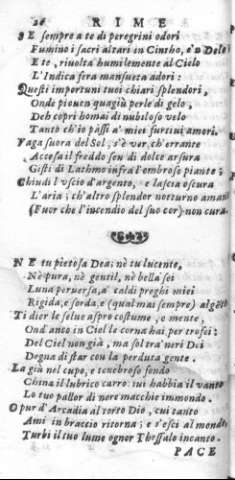 26 RIME
SE sempre a te di peregrini odori
Fumino i sacri altari in Cintho, e'n Delo
E te, rivolta humilemente al Cielo
L'Indica fera mansueta adori:
Questi importuni tuoi chiari splendori,
Onde piouen quagiù perle di gelo,
Deh copri homai di nubiloso velo
Tanto ch'io passi a' miei furtiui amori.
Vaga suora del Sol, s'è ver, ch'errante
Accesa il freddo sen di dolce arsura
Gisti di Lathmo infra l'ombrose piante;
Chiudi l'vscio d'argento, e lascia oscura
L'aria; ch'altro splendor notturno amante
(Fuor che l'incendio del suo cor) non cura.
NE tu pietosa Dea; nè tu lucente,
Nè pura, nè gentil, nè bella sei
Luna peruersa, a' caldi preghi miei
Rigida, e sorda, e (qual mai sempre) algente
Ti dier le selue aspro costume, e mente,
Ond'anco in Ciel le corna hai per trofei;
Del Ciel non già, ma sol tra' neri Dei
Degna di star con la perduta gente.
La giù nel cupo, e tenebroso fondo
China il lubrico carro: iui habbia il vanto
Lo tuo pallor di nere macchie immondo.
O pur d'Arcadia al torto Dio, cui tanto
Ami in braccio ritorna; e s'esci al mondo
Turbi il tuo lume ogner Thessalo incanto.
PACE